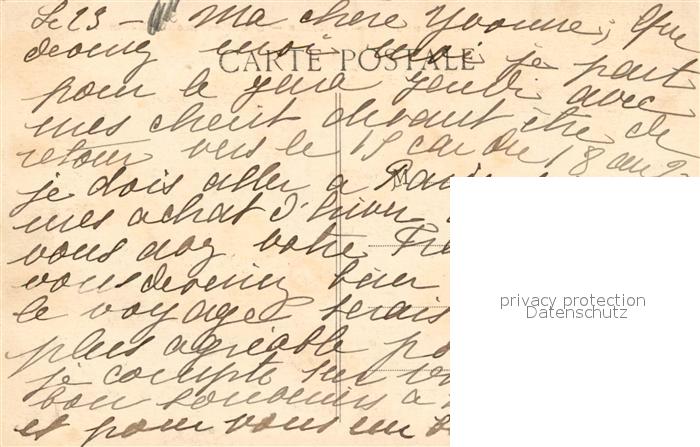 Le 23 - Ma chere Yvonne, que
devenez
CARTE POSTALE
je part
pour le Jura Jeudi avec
mes client devant être de
retour vers le 15 car du 18 au
je dois aller a Paris
M
mes achat d'hiver
vous avez votre
vous devriez bien
le voyage serais
plus agréable
je compte sur
bon souvenirs a
et pour vous un
privacy protection
Datenschutz